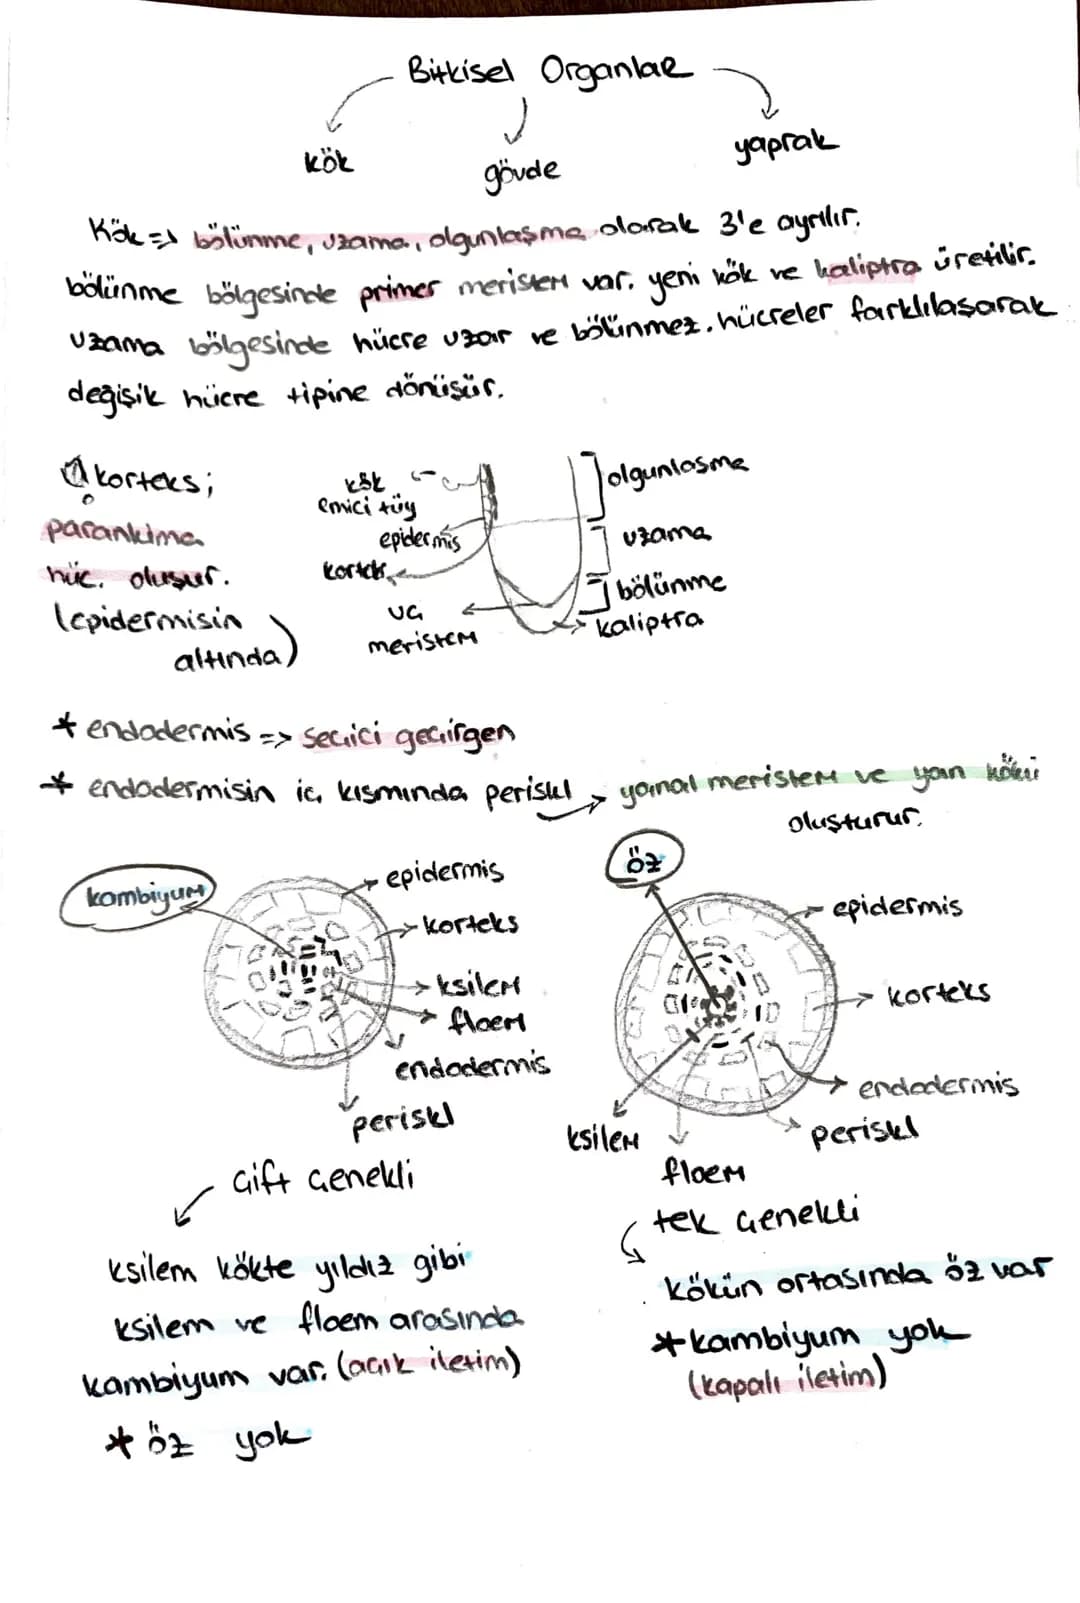 Bitkisel Organlar
kök
gövde
yaprak
Kök => bölünme, uzama, olgunlaşma olarak 3'e ayrılır.
bölünme bölgesinde primer meristem var. yeni kök ve kaliptra üretilir.
uzama bölgesinde hücre uzar ve bölünmez. hücreler farklılaşarak
değişik hücre tipine dönüşür.
korteks;
parankima
hüc. oluşur.
(epidermisin
altında)
kök
emici tüy
epidermis
korteks
uç
meristem
olgunlaşma
uzama
bölünme
kaliptra
* endodermis => seçici geçirgen
* endodermisin iç kısmında periskl → yanal meristem ve yan kökü
oluşturur.
kambiyum
epidermis
korteks
ksilem
floem
endodermis
periskl
çift çenekli
ksilem kökte yıldız gibi
ksilem ve floem arasında
kambiyum var. (açık iletim)
* öz yok
öz
epidermis
korteks
endodermis
periskl
ksilem
floem
tek çenekli
kökün ortasında öz var
* kambiyum yok
(kapalı iletim)